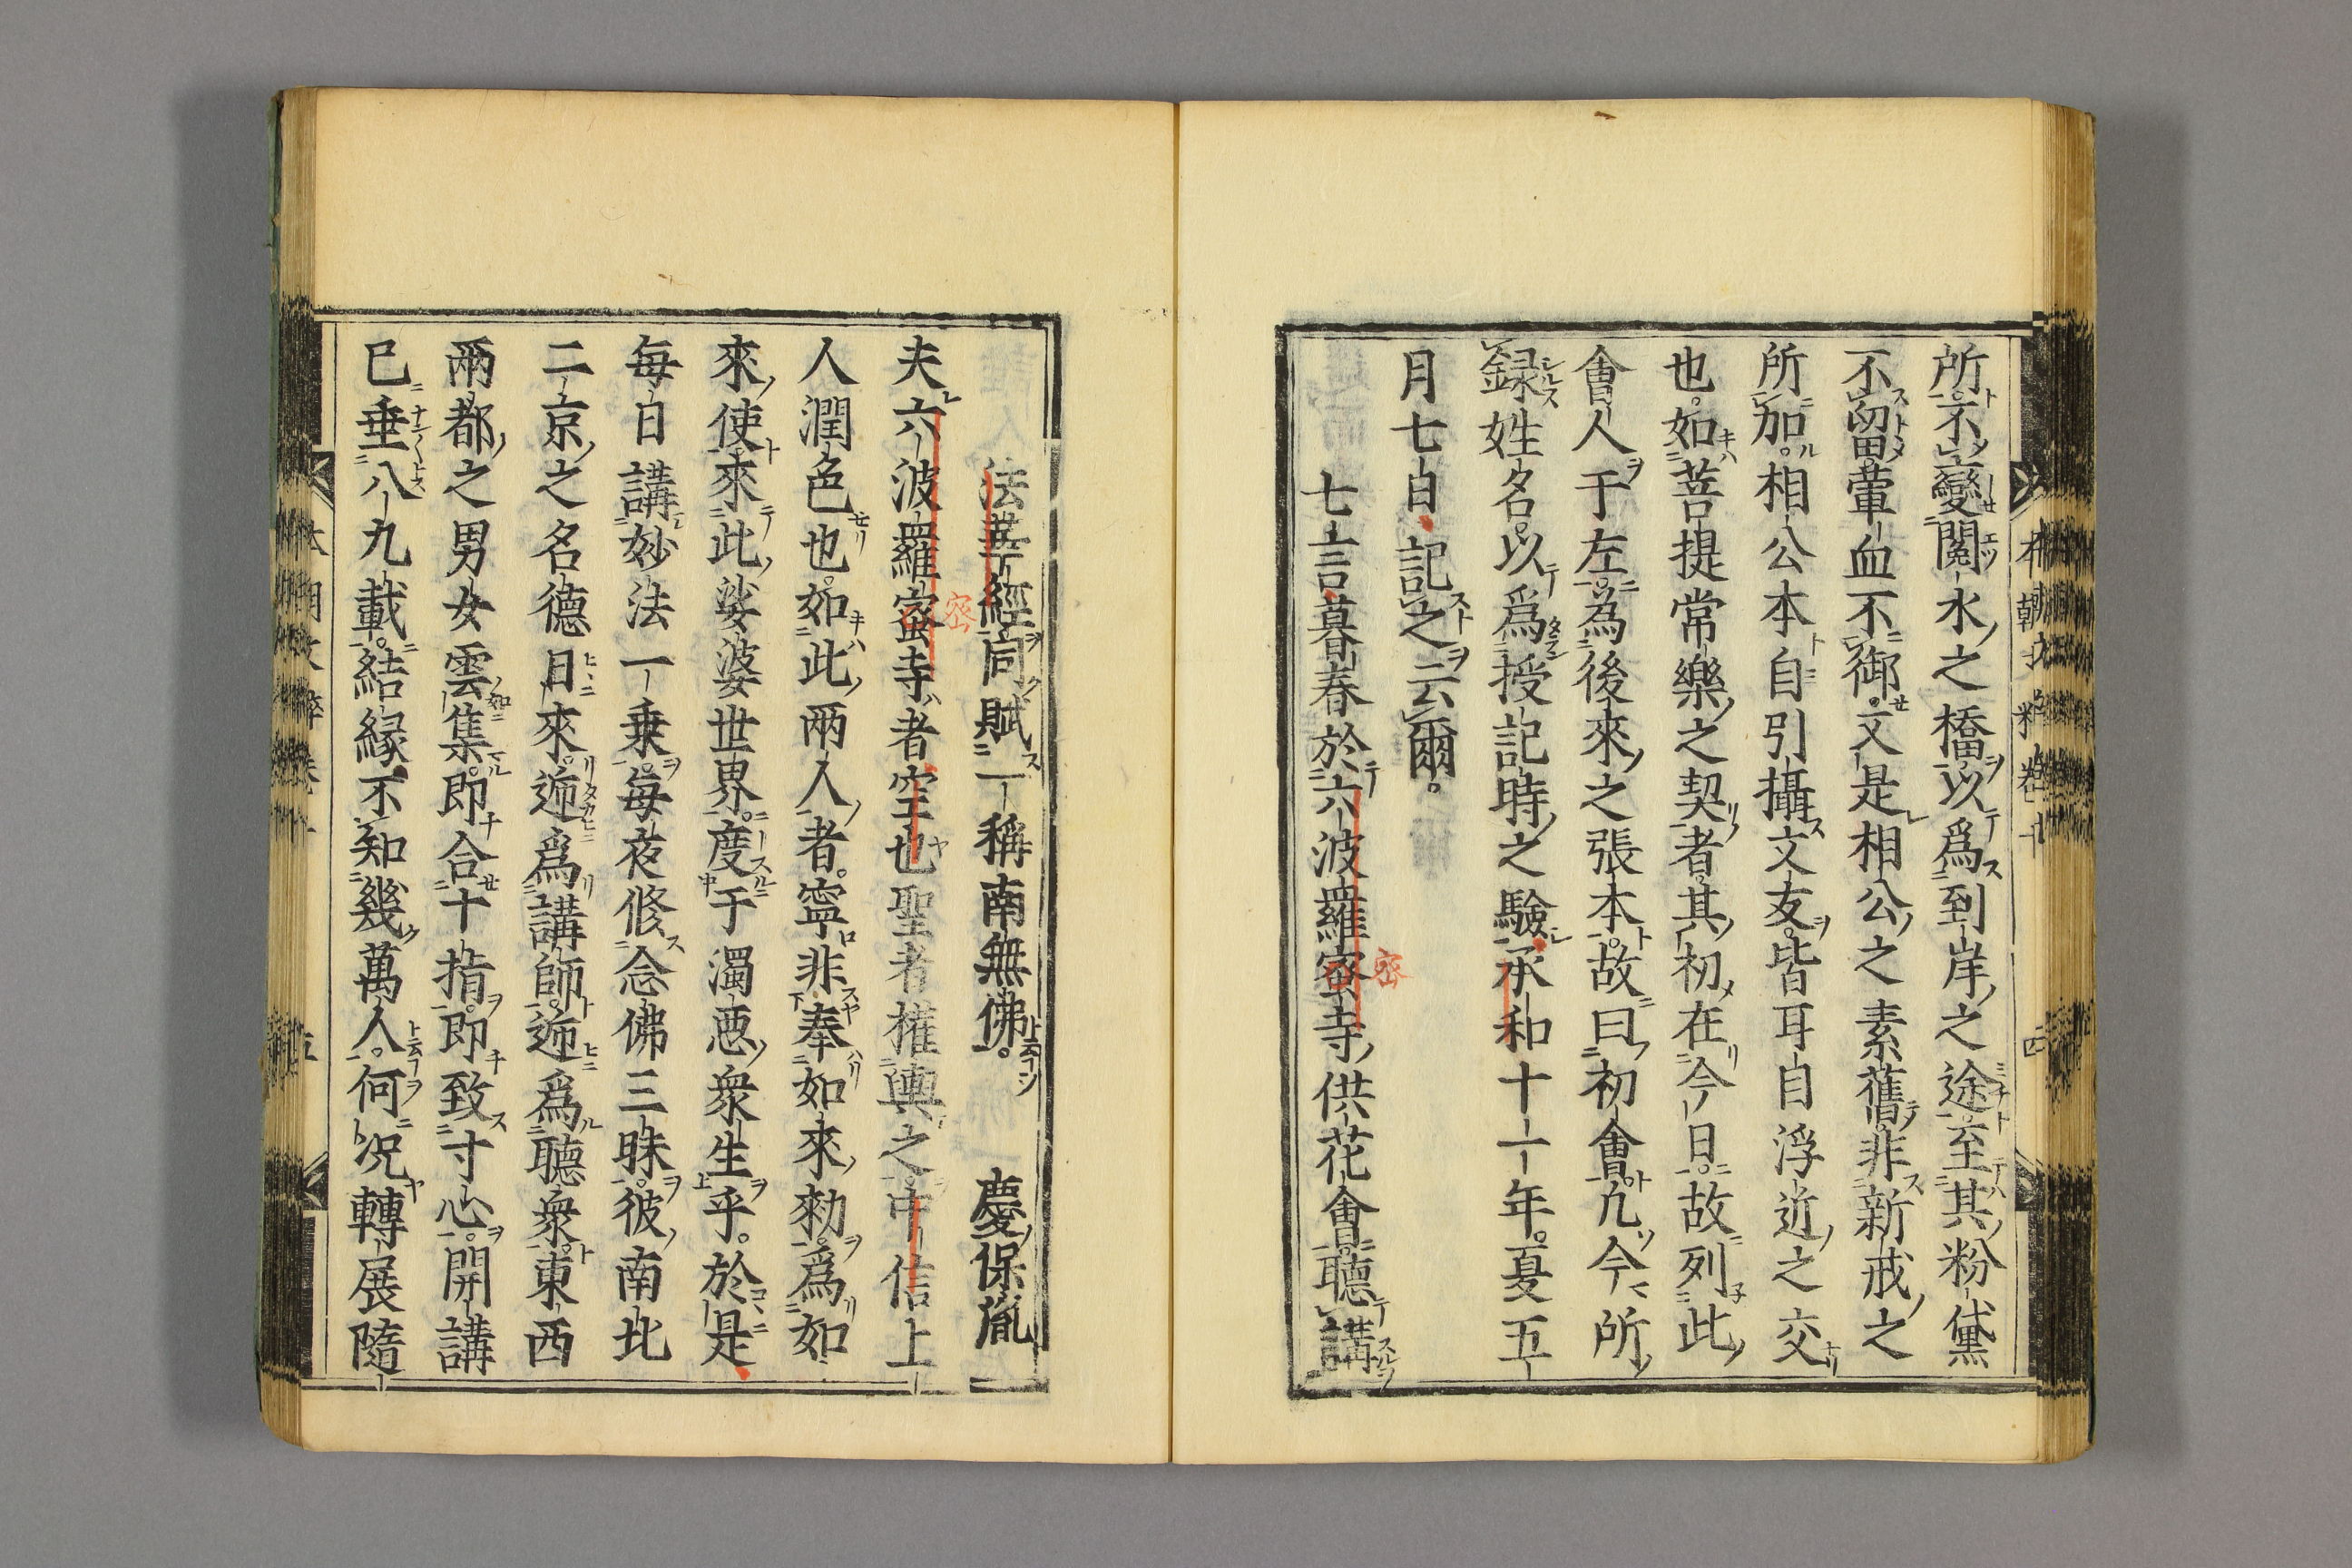 所不變閱水之橋以爲到岸之途至其粉黛
不留葷血不御文是相公之素舊非新戒之
所加相公本自引攝文友皆耳目浮近之交
也如菩提常樂之契者其初在今日故列此
會人于左為後來之張本故曰初會凢今所
録姓名以爲授記時之驗承和十一年夏五
月七日記之云爾
七言暮春於六波羅蜜寺供花會聽講
密
法華經同賦一稱南無佛 慶保胤
夫六波羅蜜寺者空也聖者權輿之中信上
密
人潤色也如此兩人者寧非奉如來勑爲如
來使來此娑婆世界度于濁惡衆生乎於是
每日講妙法一乗每夜修念佛三昧彼南北
二京之名德日來逓爲講師逓爲聽衆東西
兩都之男女雲集即合十指即致寸心開講
已垂八九載結緣不知幾萬人何況轉展隨